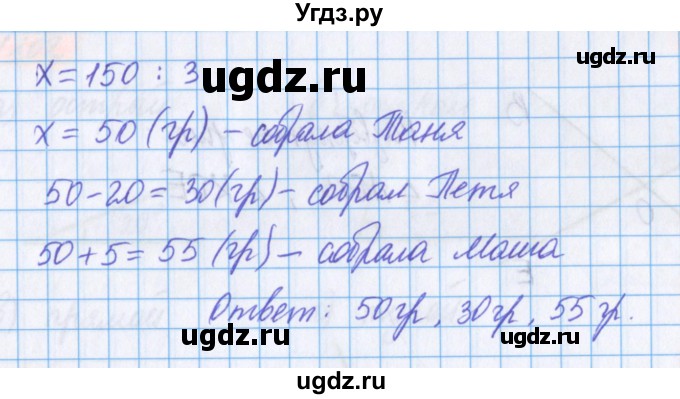 Угдз.ру
x = 150 : 3
ugdz.ru
x = 50 (гр) – собрала Таня
50 - 20 = 30 (гр) – собрал Петя
50 + 5 = 55 (гр) – собрала Маша
ugdz.ru
Ответ: 50 гр, 30 гр, 55 гр.
ugdz.ru